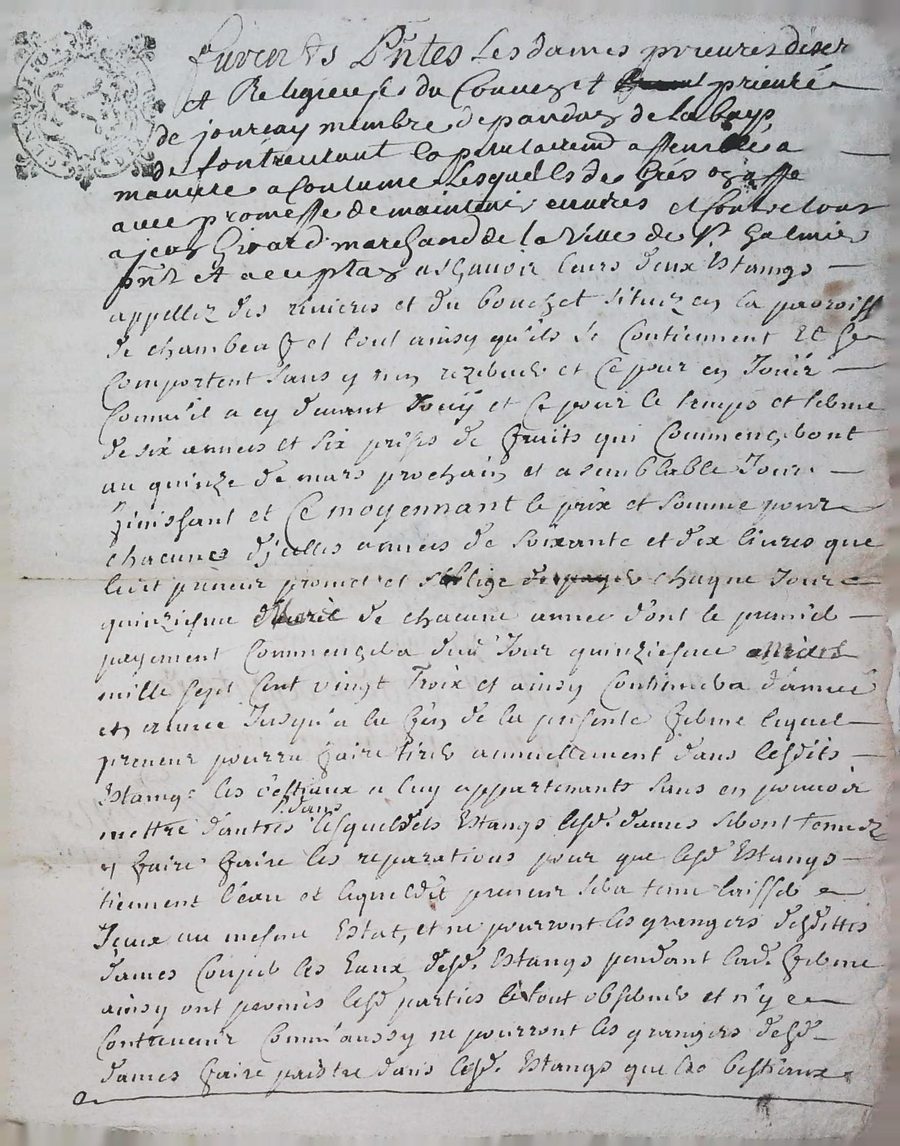 furent p̃ntes les dames prieures
et Religieuses du Couvent et prieuré
de jourcey membre depandaz de labays
de fontevraut capitulairemt assemblé a
maniere acoutume lesquells de gres
avec promesse de maintenir et
a jean Girard marchand de la Ville de St Galmier
p̃nt et aceptaz asçavoir leurs deux Estangs
appellez des rivieres et du bouchet situez en la paroisse
de chambeuf et tout ainsy qu'ils se Contiennent Et se
Comportent sans y rien rezerver et Ce pour en Jouïr
Comm'il a cy devant Jouÿ et Ce pour le temps et ferme
de six années et six prises de fruits qui Commenceront
au quinze de mars prochain et a semblable Jour
finissant et Ce moyennant le prix et somme pour
chacunes d'jcelles années de soixante et dix livres que
ledit preneur promet et s'oblige de payer chaque Jour
quinziesme de chacune année dont le premier
payement Commencera dud Jour quinziesme
mille sept cent vingt Trois et ainsy Continuera d'année
en année Jusqu'a la fin de la presente ferme lequel
preneur pourra faire tirer annuellement dans lesdits
Estangs les bestiaux a luy appartenants sans en pouvoir
dans
mettre d'autres lesquels Estangs lesd. dames seront tenues
y faire faire les reparations pour que lesd Estangs
tiennent l'eau et lequeldit preneur sera tenu laisser
Jceux au mesme Estat, et ne pourront les grangers desdittes
dames Couper les Eaux desd. Estangs pendant lad. ferme
ainsy ont promis lesd parties le tout observer et n'y
Contrevenir Comm'aussy ne pourront les grangers desd
dames faire paistre dans lesd. Estangs que les bestiaux